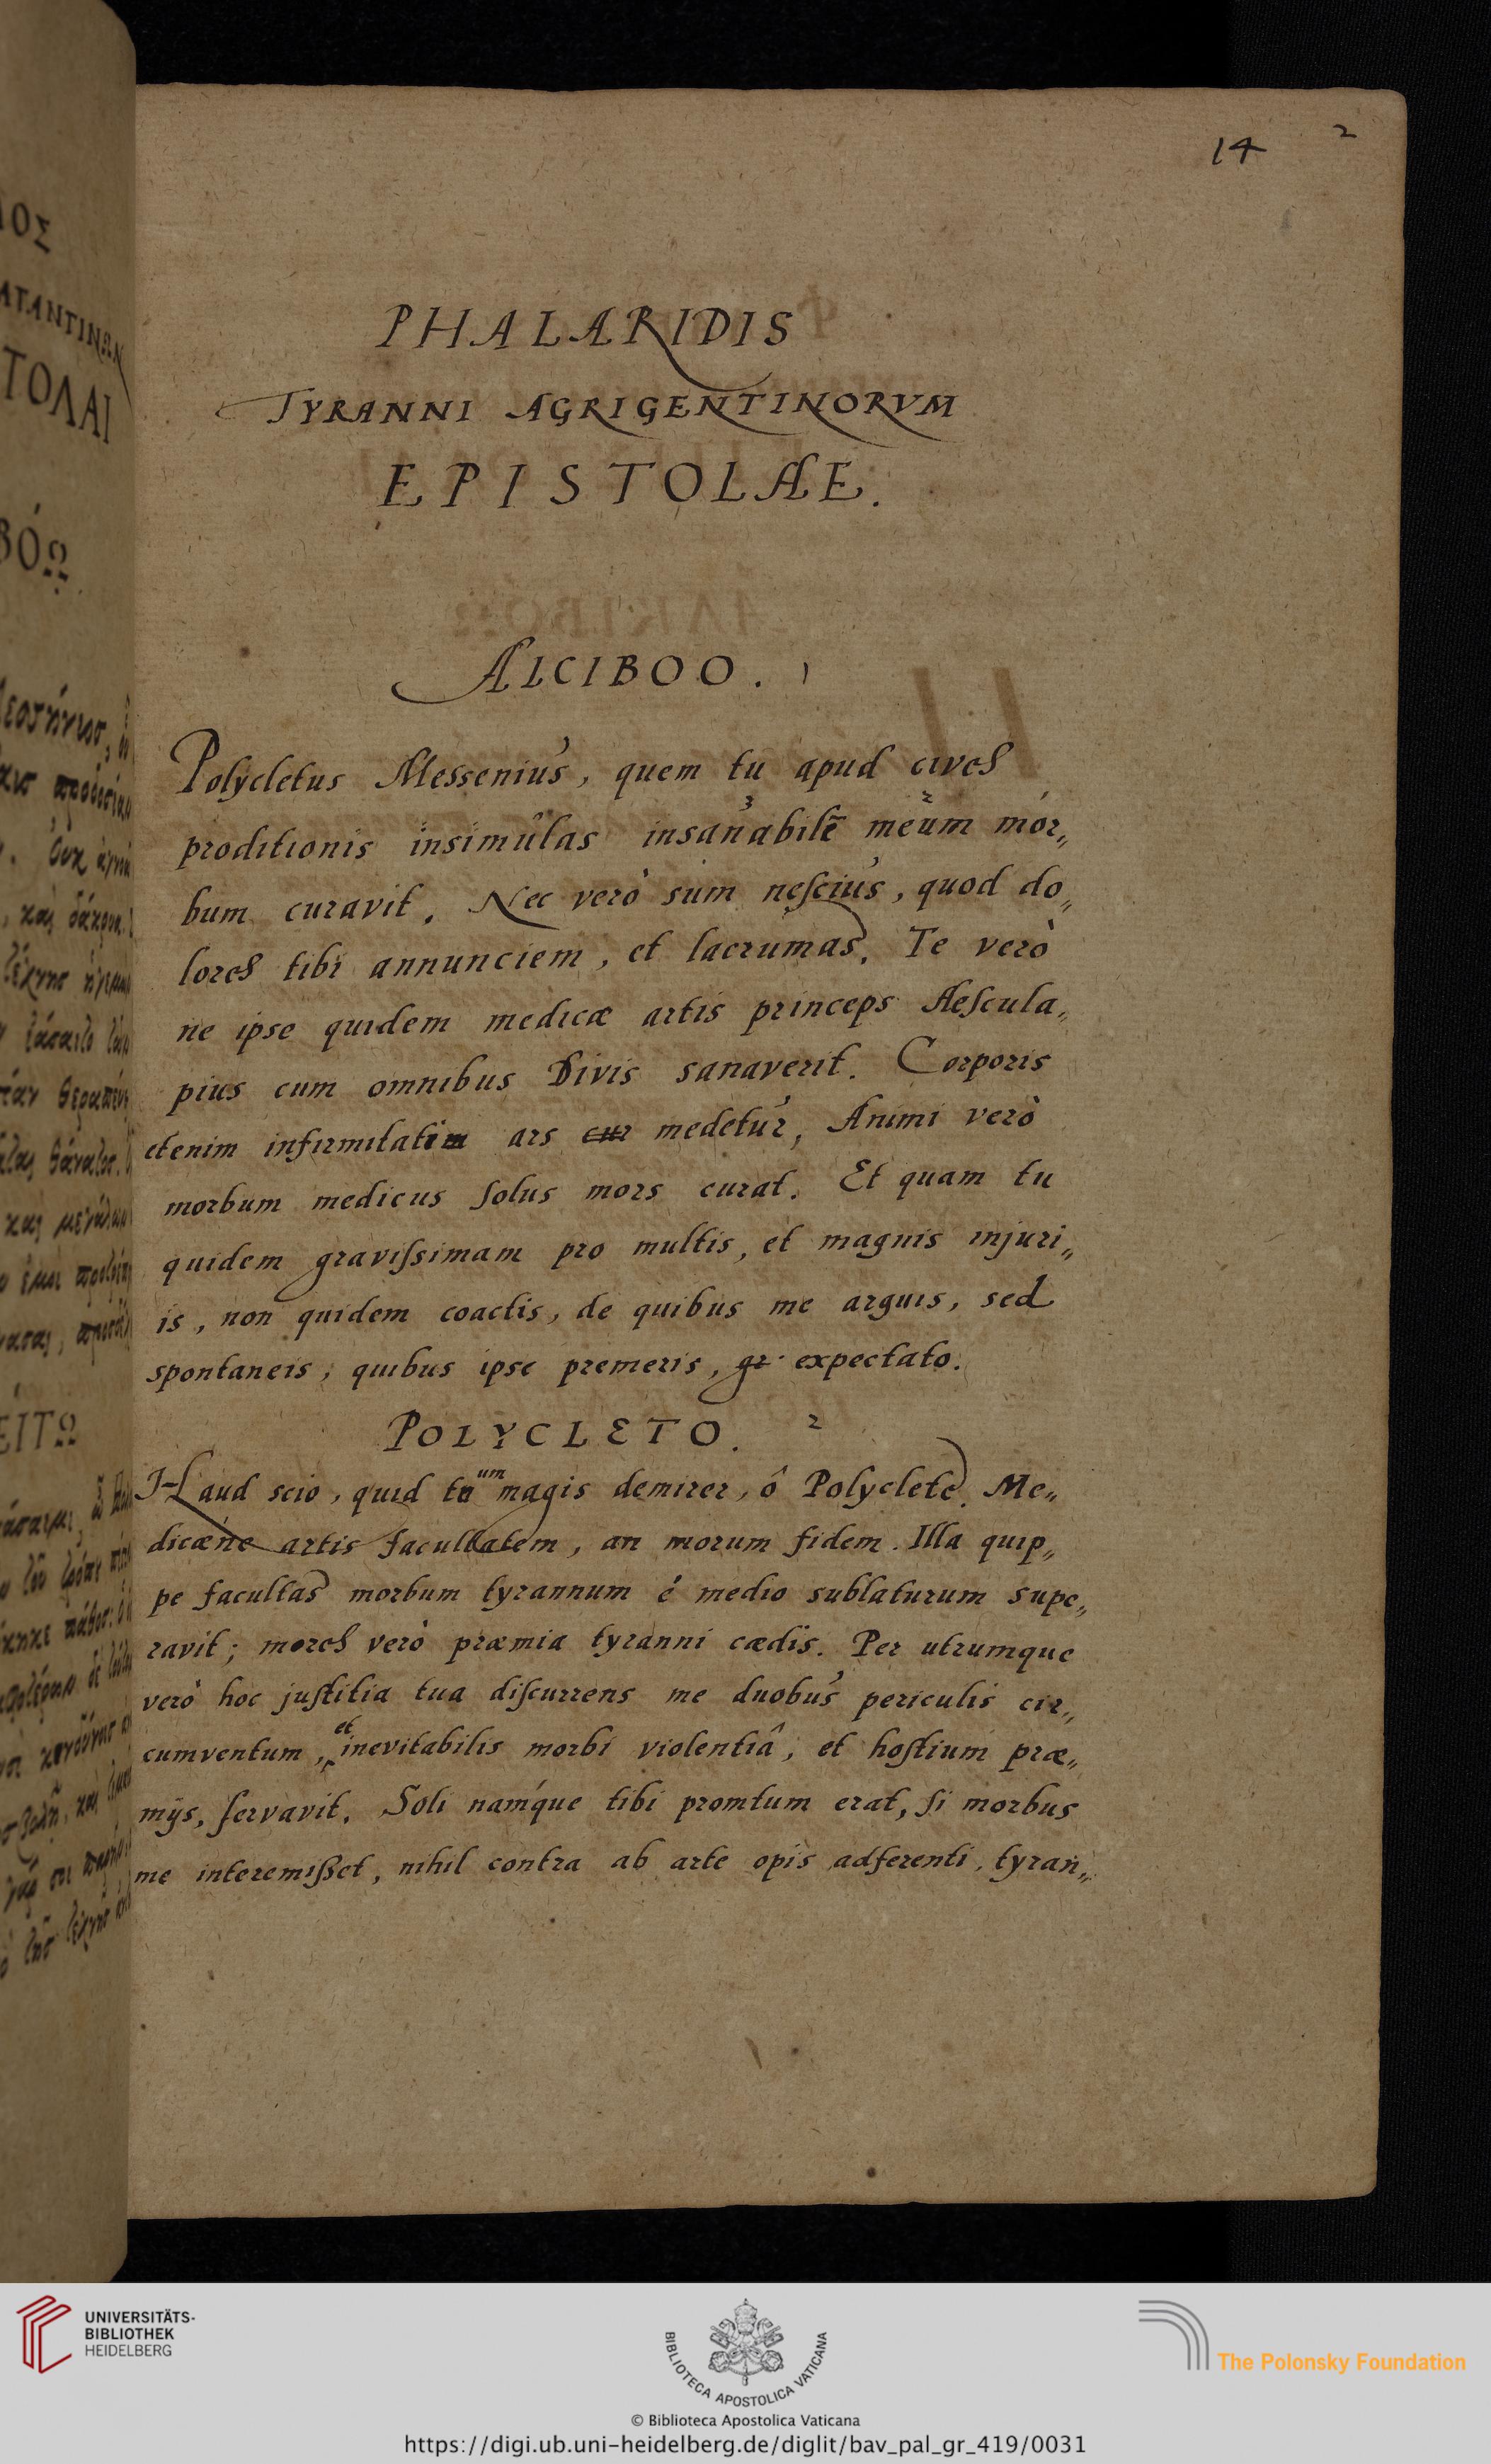 14 2
PHALARIDIS
TYRANNI AGRIGENTINORVM
EPISTOLÆ.
ALCIBOO. 1
Polycletus Messenius, quem tu apud cives
proditionis insimûlas insanabilē meum mor„
bum curavit. Nec verò sum nescius, quod do„
lores tibi annunciem, et lacrumas. Te verò
ne ipse quidem medicæ artis princeps Aescula„
pius cum omnibus Divis sanaverit. Corporis
etenim infirmitatim ars cur medetur, Animi verò
morbum medicus solus mors curat. Et quam tu
quidem gravissimam pro multis, et magnis injuri„
is, non quidem coactis, de quibus me arguis, sed
spontaneis, quibus ipse premeris, gr. expectato.
POLYCLETO. 2
Haud scio, quid tuum magis demirer, ô Polyclete. Me„
dicæne artis facultatem, an morum fidem. Illa quip„
pe facultas morbum tyrannum é medio sublaturum supe„
ravit; mores verò præmia tyranni cædis. Per utrumque
verò hoc justitia tua discurrens me duobus periculis cir„
cumventum, et inevitabilis morbi violentiâ, et hostium præ„
mijs, servavit. Soli namque tibi promtum erat, si morbus
me interemisset, nihil contra ab arte opis adferenti, tyran„
ΤΟΛΑΙ
UNIVERSITÄTS-
BIBLIOTHEK
HEIDELBERG
BIBLIOTECA APOSTOLICA VATICANA
The Polonsky Foundation
© Biblioteca Apostolica Vaticana
https://digi.ub.uni-heidelberg.de/diglit/bav_pal_gr_419/0031